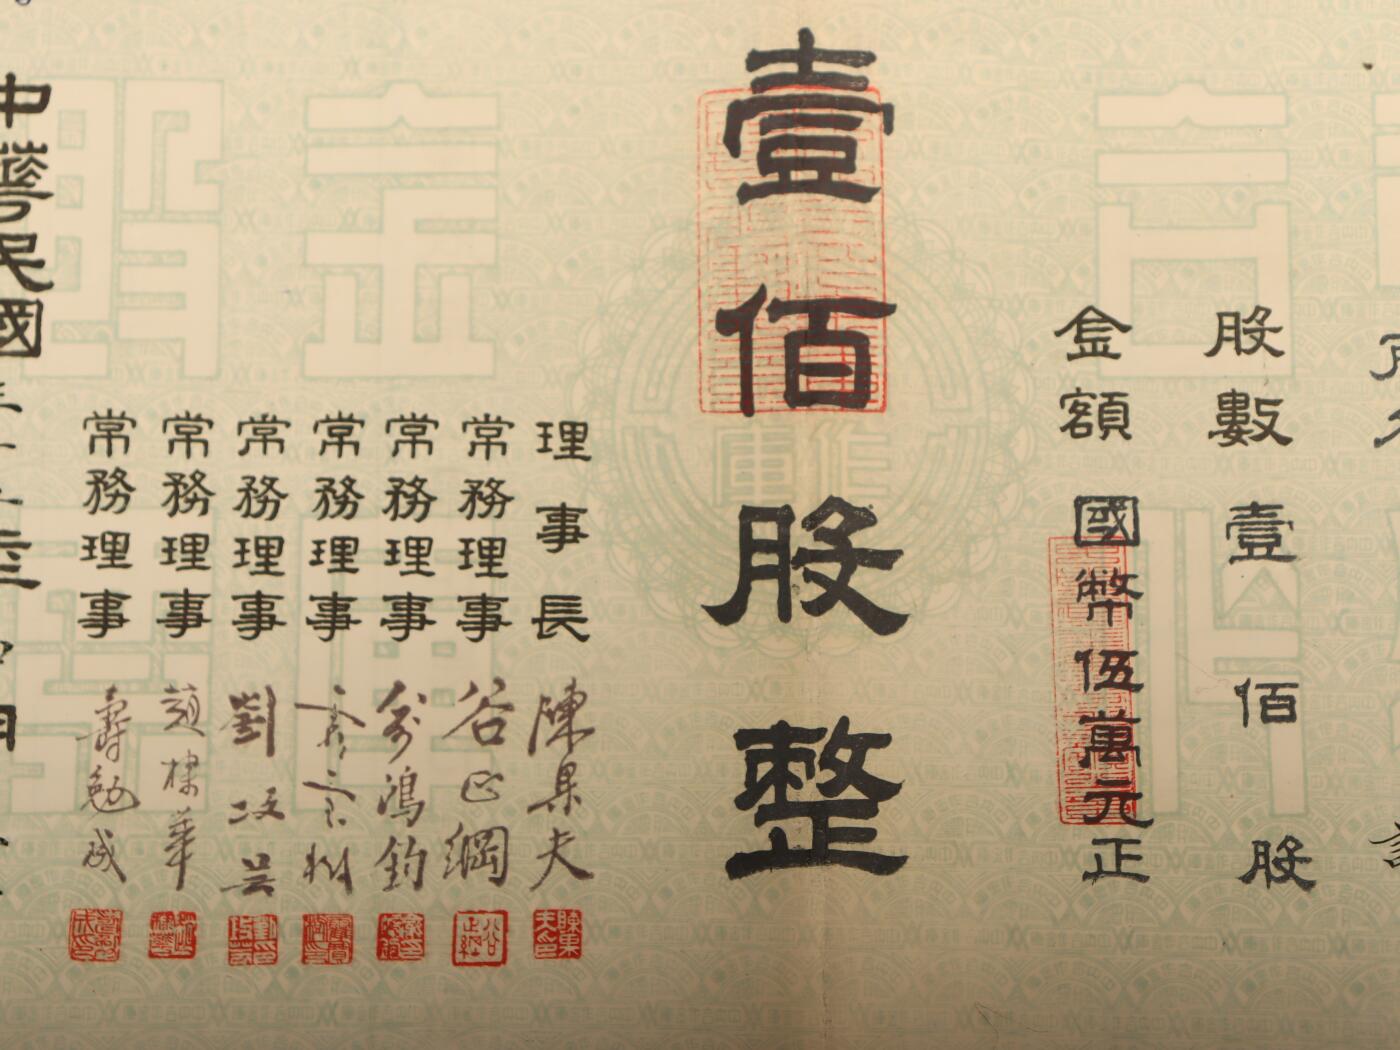 股數 壹佰股
金額 國幣伍萬元正
壹佰股整
理事長 陳果夫
常務理事 谷正綱
常務理事 俞鴻鈞
常務理事 霍寶樹
常務理事 劉攻芸
常務理事 趙棣華
常務理事 壽勉成
中華民國